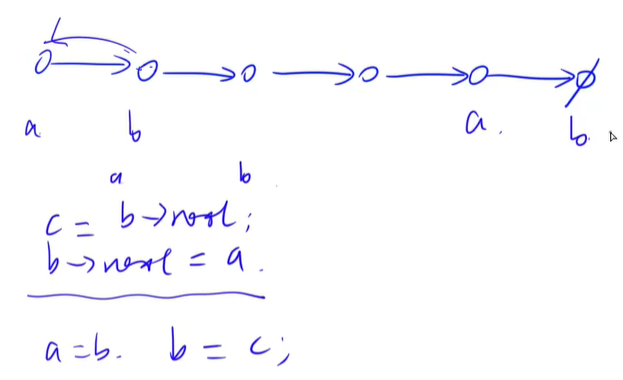 a b a. b.
a b
c = b->next;
b->next = a.
a=b. b = c;